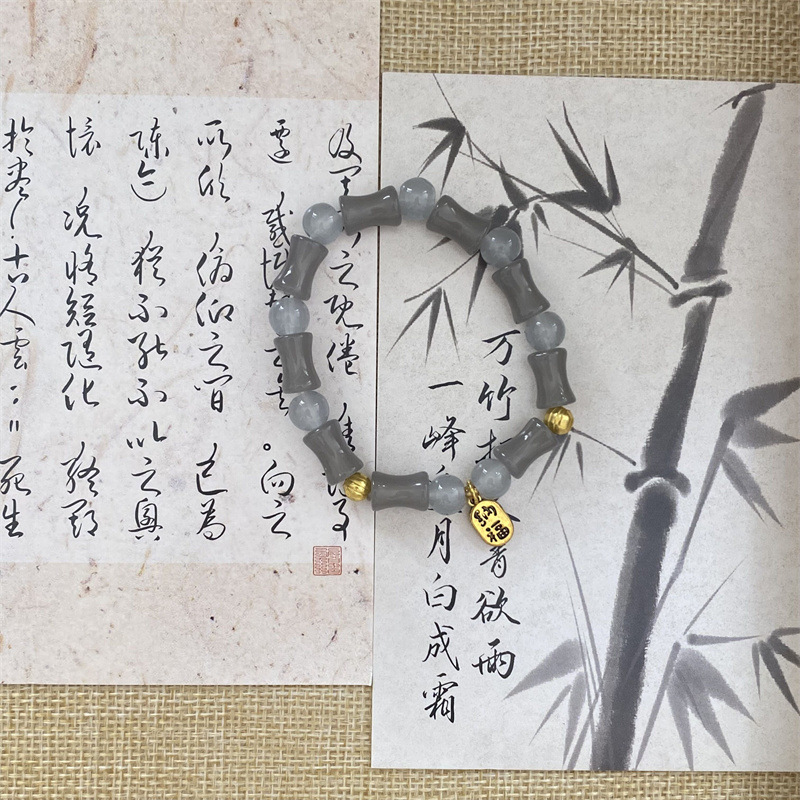 及之既倦事
遷感之矣。向之
所欣俯仰之間已為
陳迹猶不能不以之興
懷況脩短隨化終期
於盡!古人雲:“死生
万竹青欲雨
一峰月白成霜
纳福